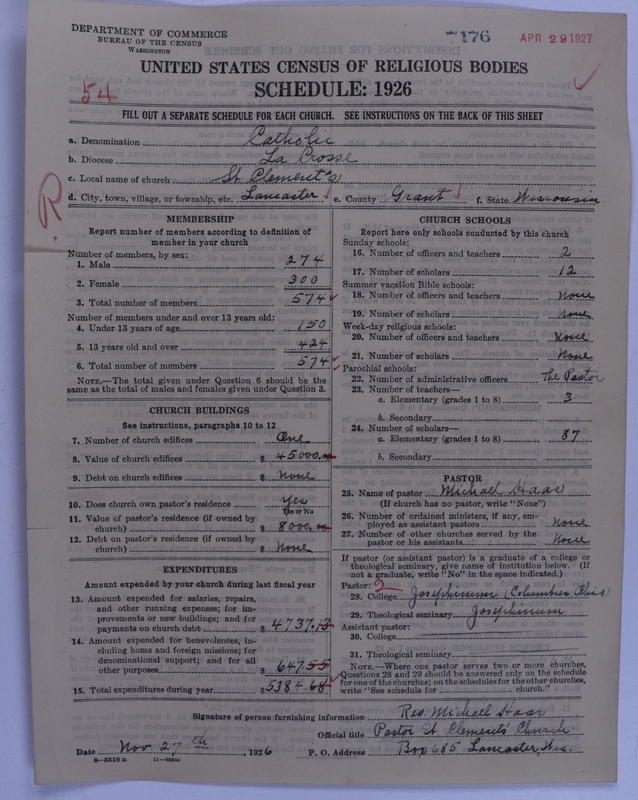 DEPARTMENT OF COMMERCE
BUREAU OF THE CENSUS
WASHINGTON
7176 APR 29 1927
UNITED STATES CENSUS OF RELIGIOUS BODIES
SCHEDULE: 1926
54
FILL OUT A SEPARATE SCHEDULE FOR EACH CHURCH. SEE INSTRUCTIONS ON THE BACK OF THIS SHEET
a. Denomination Catholic
b. Diocese La Crosse
c. Local name of church St Clement's
d. City, town, village, or township, etc. Lancaster e. County Grant f. State Wisconsin
R
MEMBERSHIP
Report number of members according to definition of
member in your church
Number of members, by sex:
1. Male 274
2. Female 300
3. Total number of members 574
Number of members under and over 13 years old:
4. Under 13 years of age 150
5. 13 years old and over 424
6. Total number of members 574
NOTE.—The total given under Question 6 should be the
same as the total of males and females given under Question 3.
CHURCH BUILDINGS
See instructions, paragraphs 10 to 12
7. Number of church edifices One
8. Value of church edifices $ 45000.
9. Debt on church edifices $ None
10. Does church own pastor's residence yes
Yes or No
11. Value of pastor's residence (if owned by
church) $ 8000.
12. Debt on pastor's residence (if owned by
church) $ None
EXPENDITURES
Amount expended by your church during last fiscal year
13. Amount expended for salaries, repairs,
and other running expenses; for im-
provements or new buildings; and for
payments on church debt $ 4737.13
14. Amount expended for benevolences, in-
cluding home and foreign missions; for
denominational support; and for all
other purposes $ 647.55
15. Total expenditures during year $ 5384.68
CHURCH SCHOOLS
Report here only schools conducted by this church
Sunday schools:
16. Number of officers and teachers 2
17. Number of scholars 12
Summer vacation Bible schools:
18. Number of officers and teachers None
19. Number of scholars None
Week-day religious schools:
20. Number of officers and teachers None
21. Number of scholars None
Parochial schools:
22. Number of administrative officers The Pastor
23. Number of teachers—
a. Elementary (grades 1 to 8) 3
b. Secondary
24. Number of scholars—
a. Elementary (grades 1 to 8) 87
b. Secondary
PASTOR
25. Name of pastor Michael Haas
(If church has no pastor, write "None")
26. Number of ordained ministers, if any, em-
ployed as assistant pastors None
27. Number of other churches served by the
pastor or his assistants None
If pastor (or assistant pastor) is a graduate of a college or
theological seminary, give name of institution below. (If
not a graduate, write "No" in the space indicated.)
Pastor: 2
28. College Josephinum (Columbus Ohio)
29. Theological seminary Josephinum
Assistant pastor:
30. College
31. Theological seminary
NOTE.—Where one pastor serves two or more churches,
Questions 28 and 29 should be answered only on the schedule
for one of the churches; on the schedules for the other churches,
write "See schedule for church."
Signature of person furnishing information Rev. Michael Haas
Official title Pastor St Clement's Church
Date Nov. 27th, 1926 P. O. Address Box 685 Lancaster, Wis.
8-5518a 11-9084